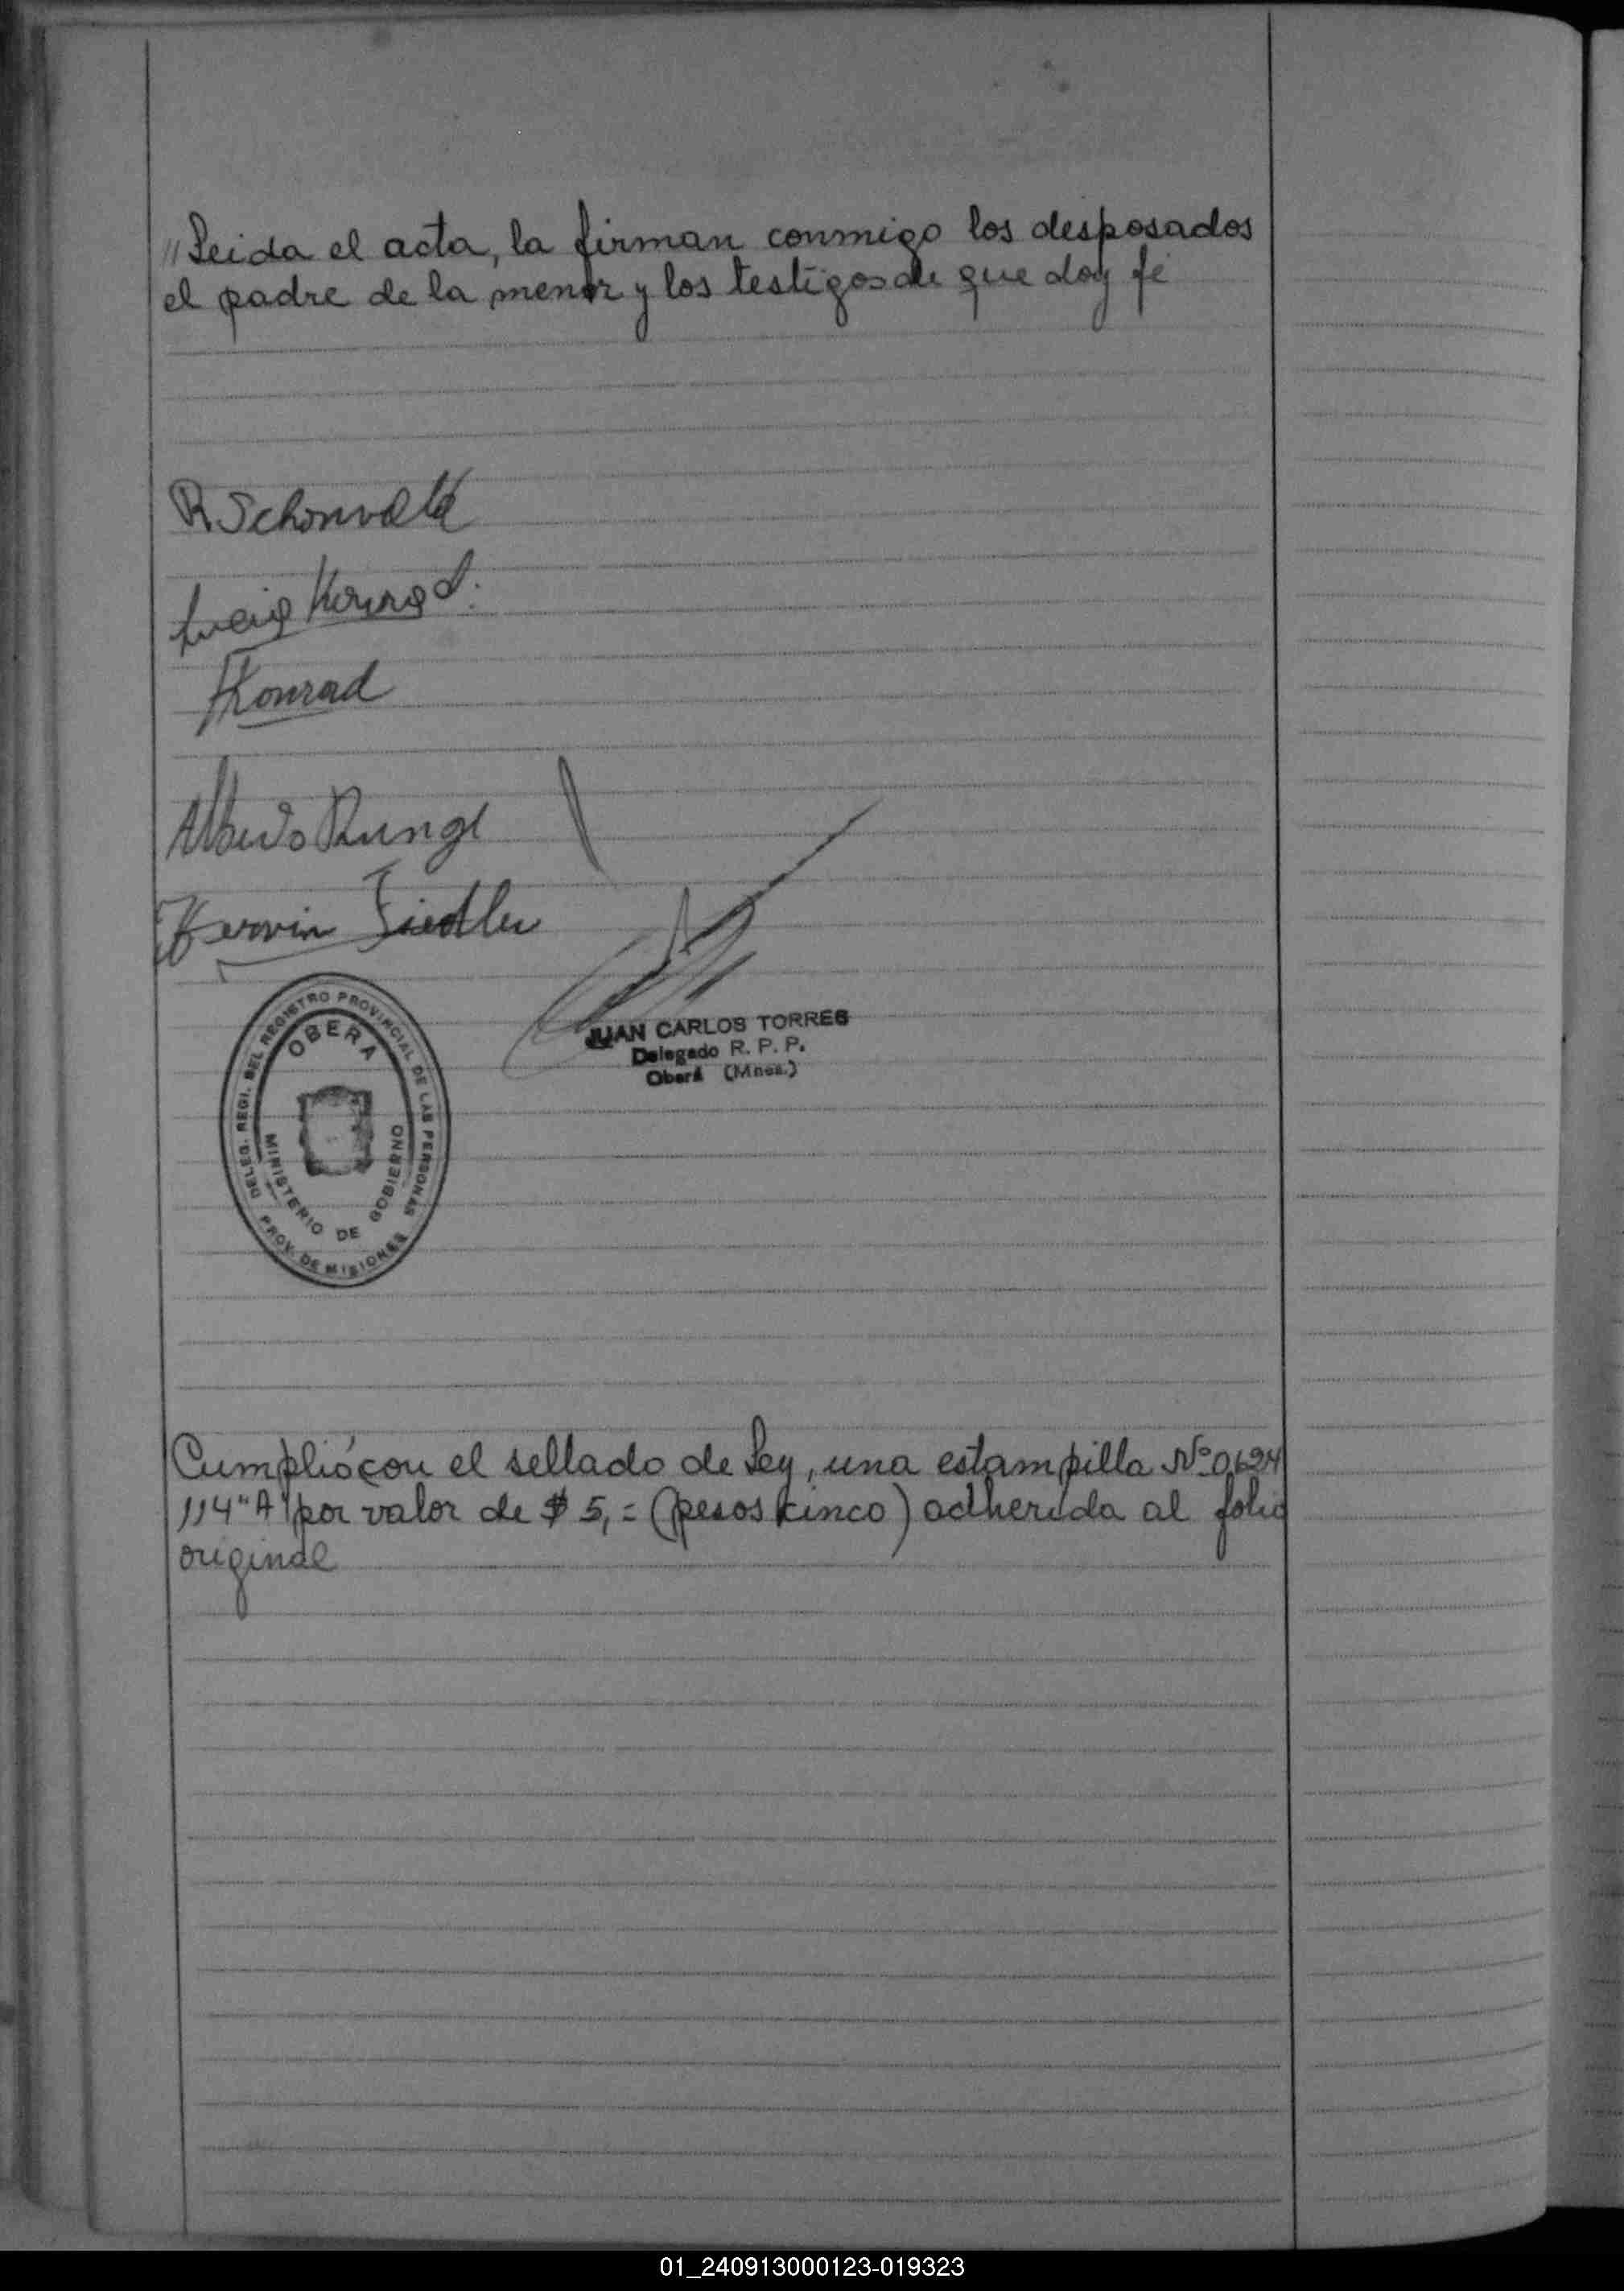 "Leida el acta, la firman conmigo los desposados
el padre de la menor y los testigos de que doy fé
R Schonvald
Lucia Konrad.
Konrad
Alberto Runge
Hervin Fiedler
JUAN CARLOS TORRES
Delegado R. P. P.
Oberá (Mnes.)
DELEG. REGI. DEL REGISTRO PROVINCIAL DE LAS PERSONAS
OBERA
MINISTERIO DE GOBIERNO
PROV. DE MISIONES
Cumplió con el sellado de Ley, una estampilla Nº 0624
114 "A" por valor de $ 5,= (pesos cinco) adherida al folio
original
01_240913000123-019323